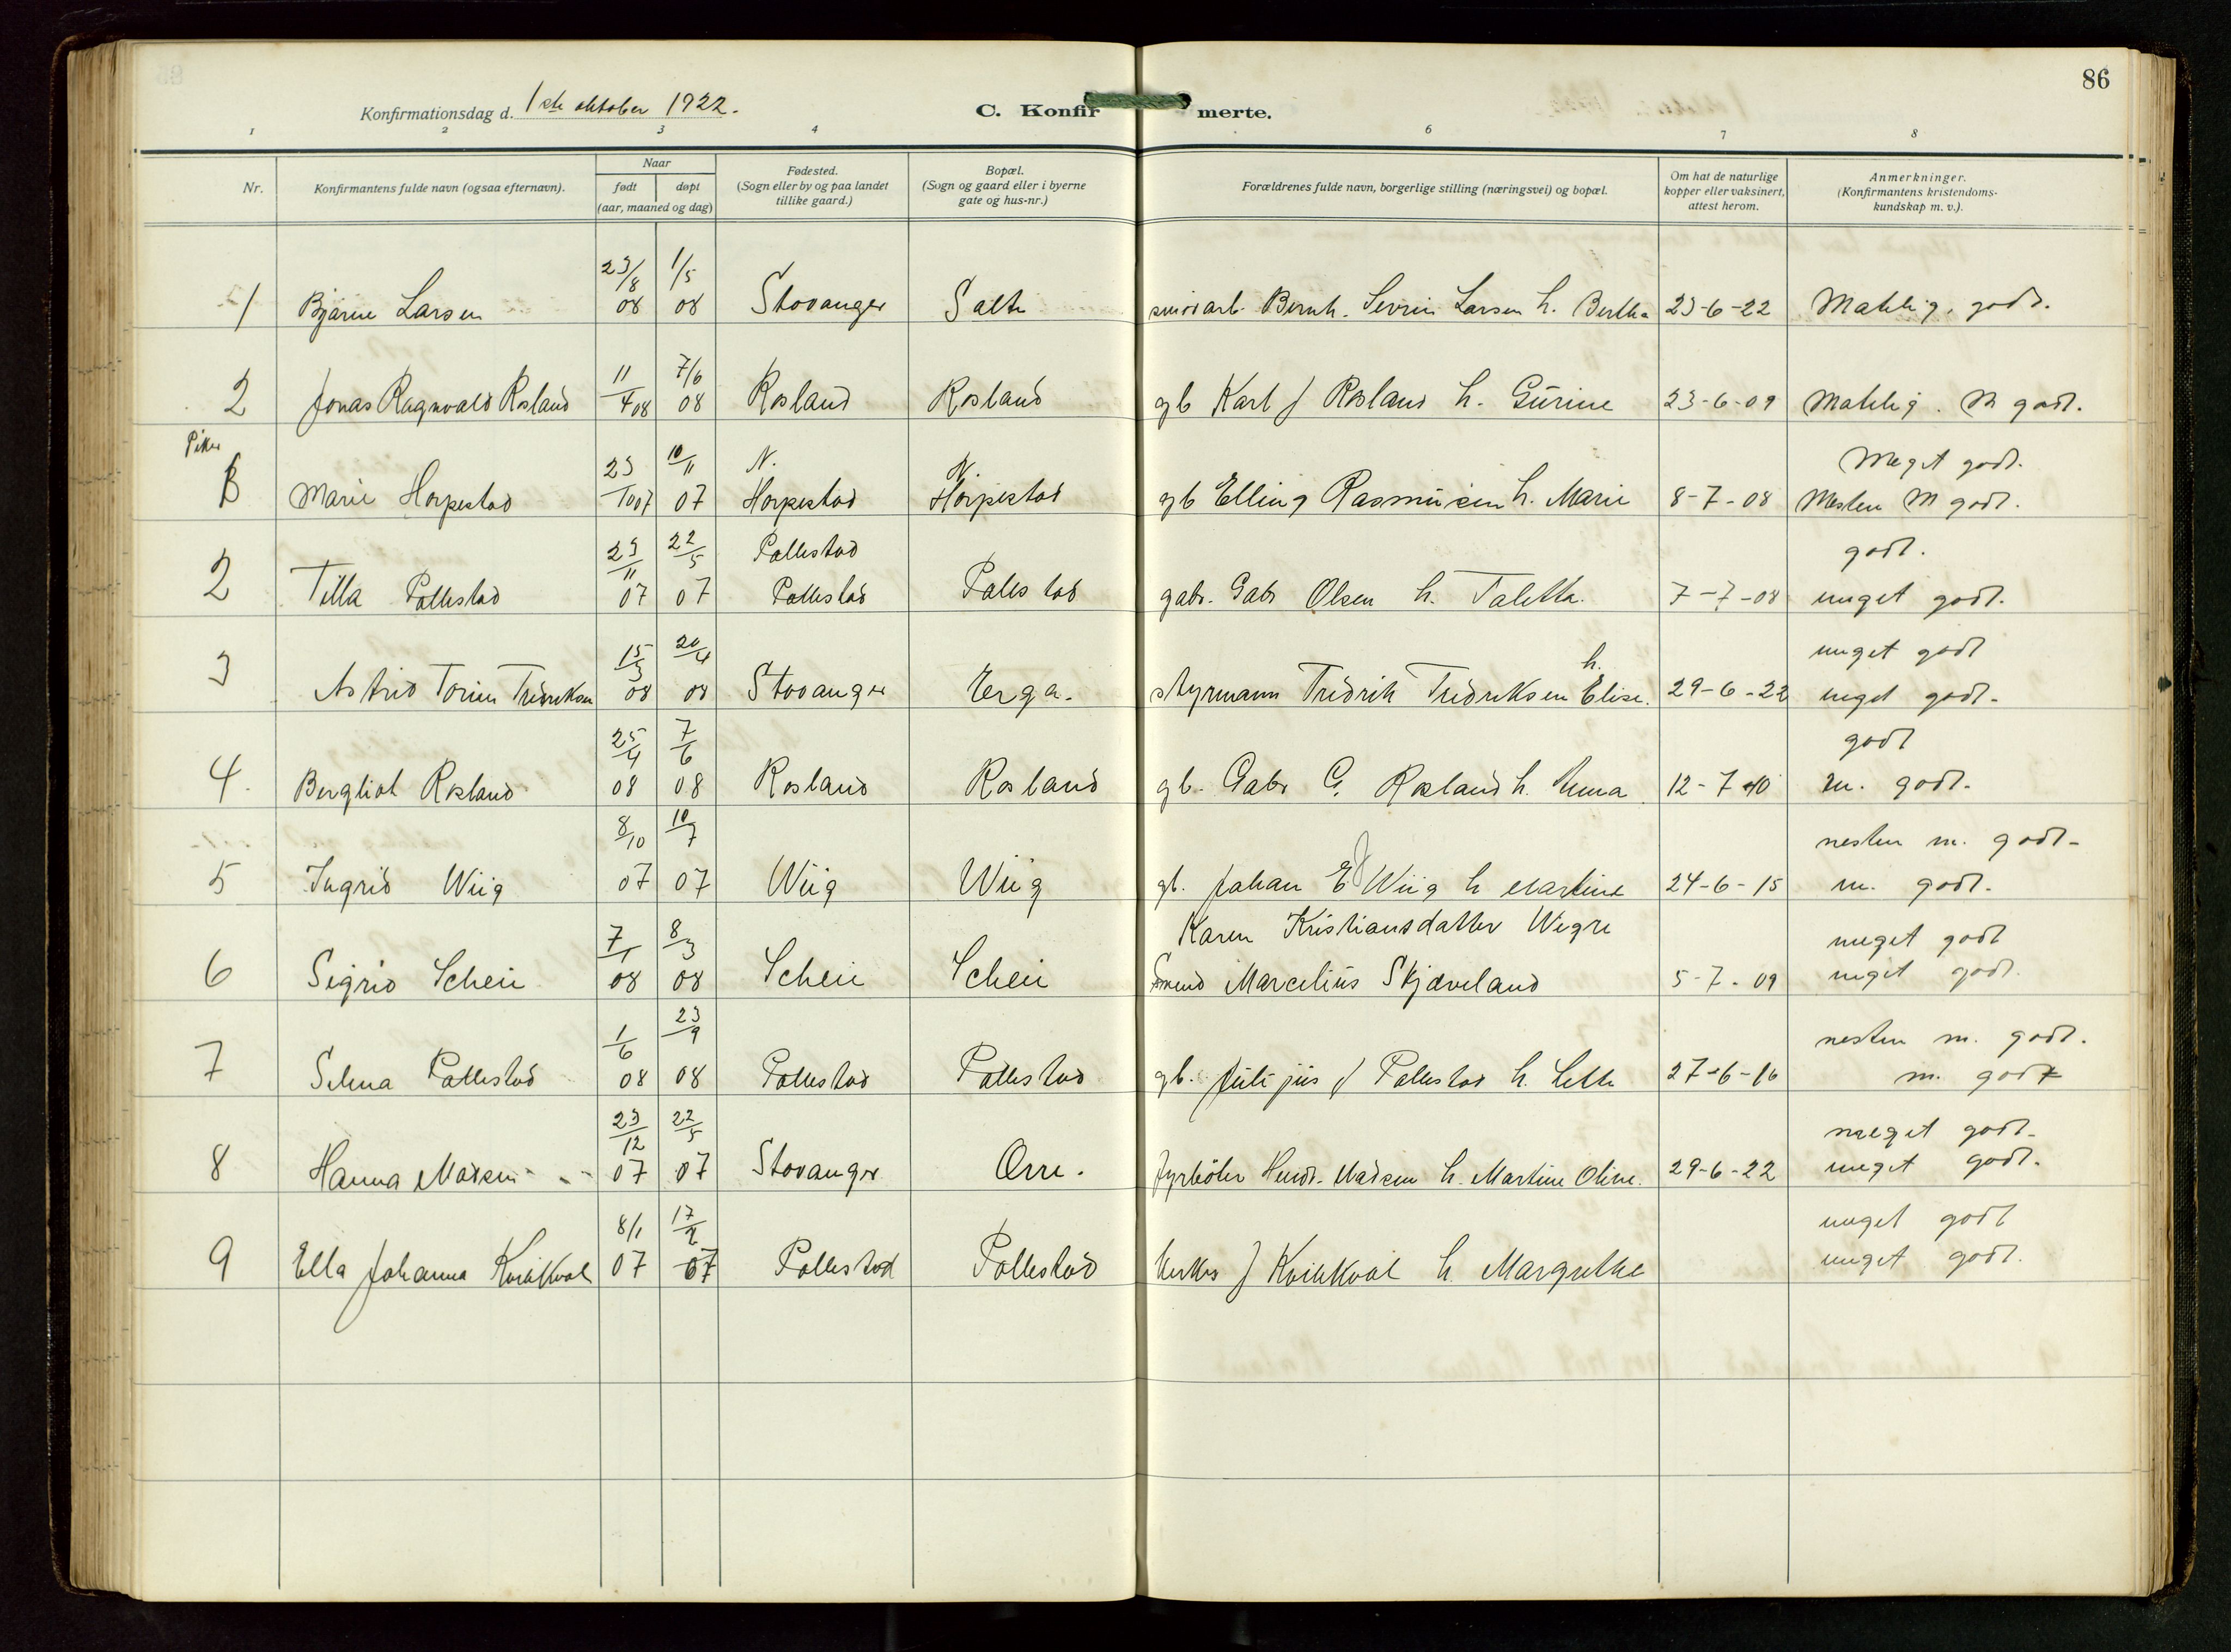 86
Konfirmationsdag d. 1ste oktober 1922.
C. Konfirmerte.
1 2 3 4 6 7 8
Nr.
Konfirmantens fulde navn (ogsaa efternavn).
Naar
født døpt
(aar, maaned og dag)
Fødested.
(Sogn eller by og paa landet
tillike gaard.)
Bopæl.
(Sogn og gaard eller i byerne
gate og hus-nr.)
Forældrenes fulde navn, borgerlige stilling (næringsvei) og bopæl.
Om hat de naturlige
kopper eller vaksinert,
attest herom.
Anmerkninger.
(Konfirmantens kristendoms-
kundskap m. v.).
23/8 1/5
1 Bjarne Larsen 08 08 Stavanger Salte Bernh. Sevrin Larsen h. Bertha 23-6-22 Mahlig, godt.
11 7/6
2 Jonas Ragnvald Rosland /4 08 08 Rosland Rosland gb Karl J Rosland h. Gurine 23-6-09 Mahlig. M godt.
Piker
23 10/11 N. N. Meget godt.
1 Marie Horpestad /10 07 07 Horpestad Horpestad gb Elling Rasmusen h. Marie 8-7-08 Nesten M godt.
23/11 22/5 Pollestad godt.
2 Tilla Pollestad 07 07 Pollestad Pollestad gabr. Gabr Olsen h. Taletta. 7-7-08 meget godt.
15/3 20/4 h. meget godt
3 Astrid Torine Fredriksen 08 08 Stavanger Erga. styrmann Fredrik Fredriksen Elise. 29-6-22 meget godt.
25/4 7/6 godt
4. Bergliot Rosland 08 08 Rosland Rosland gb. Gabr G. Rosland h. Anna 12-7-10 m. godt.
8/10 10/7 nesten m. godt.
5 Ingrid Wiig 07 07 Wiig Wiig gb. Johan E Wiig h Martine 24-6-15 m. godt.
7/1 8/3 Karen Kristiansdatter Wigre meget godt
6 Sigrid Scheie 08 08 Scheie Scheie Smend Marcelius Skjæveland 5-7-09 meget godt.
1/6 23/9 nesten m. godt.
7 Selma Pollestad 08 08 Pollestad Pollestad gb. Julijus J Pollestad h. Lette 27-6-16 m. godt
23/12 22/5 meget godt.
8 Hanna Madsen 07 07 Stavanger Orre. fyrbøter Hendr. Madsen h. Martine Oline. 29-6-22 meget godt.
8/1 17/2 meget godt
9 Ella Johanna Kvikkval 07 07 Pollestad Pollestad J Kvikkval h. Margrethe meget godt.